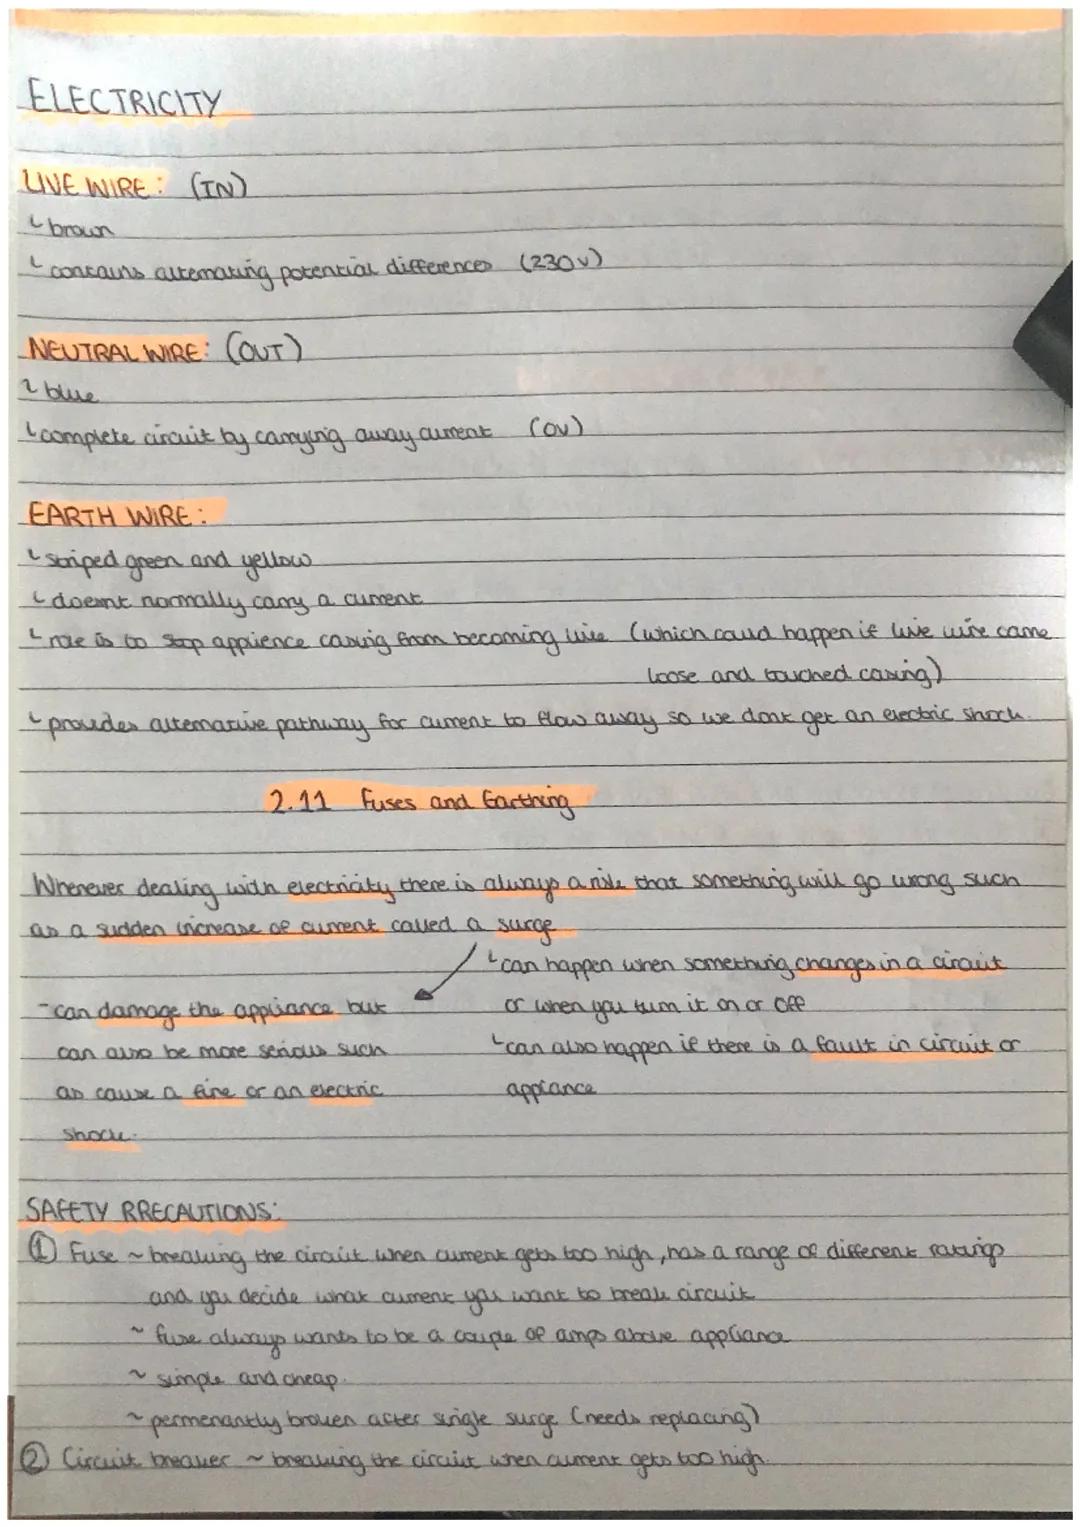 ELECTRICITY
LIVE WIRE: (IN)
brown
contains alternating potential differences (230v)
NEUTRAL WIRE: (OUT)
blue
complete circuit by carrying away current (0v)
EARTH WIRE:
striped green and yellow
doesnt normally carry a current
role is to stop appience casing from becoming live (which could happen if live wire came
loose and touched casing)
provides alternative pathway for current to flow away so we dont get an electric shock.
2.11 Fuses and Earthing
Whenever dealing with electricity there is always a risk that something will go wrong such
as a sudden increase of current called a surge
can happen when something changes in a circuit
or when you turn it on or off
can also happen if there is a fault in circuit or
appiance
-can damage the appliance but
can also be more serious such
as cause a fire or an electric
shock.
SAFETY RRECAUTIONS:
① Fuse ~ breaking the circuit when current gets too high, has a range of different ratings
and you decide what current you want to break circuit
~ fuse always wants to be a couple of amps above appliance
~ simple and cheap.
~ permenantly broken after single surge (needs replacing)
② Circuit breaker ~ breaking the circuit when current gets too high.